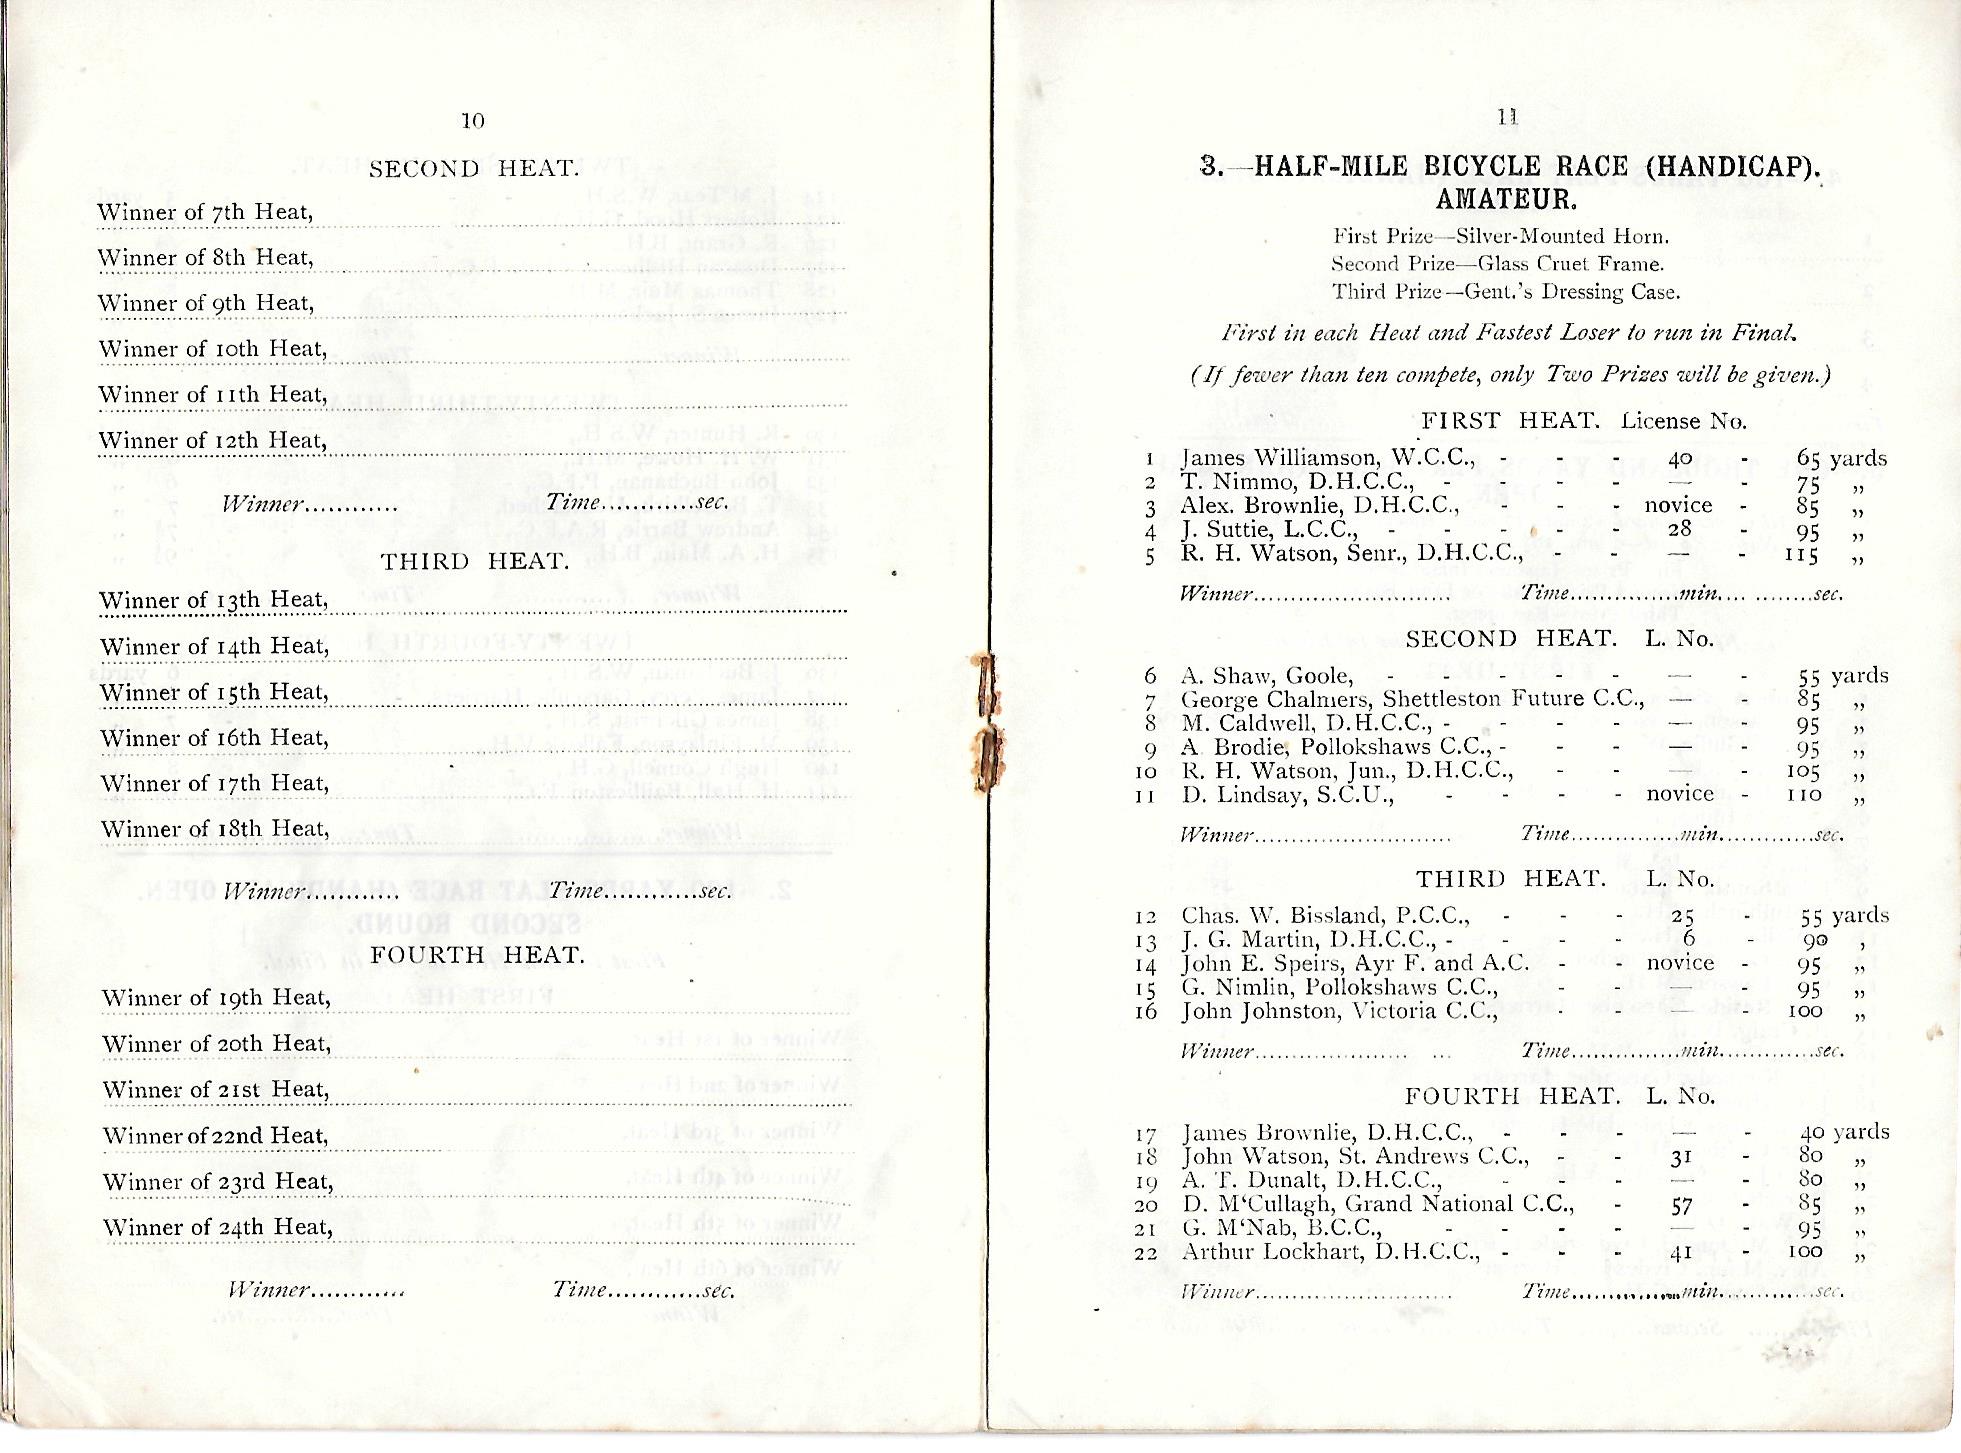 10
SECOND HEAT.
Winner of 7th Heat,
Winner of 8th Heat,
Winner of 9th Heat,
Winner of 10th Heat,
Winner of 11th Heat,
Winner of 12th Heat,
Winner............ Time............sec.
THIRD HEAT.
Winner of 13th Heat,
Winner of 14th Heat,
Winner of 15th Heat,
Winner of 16th Heat,
Winner of 17th Heat,
Winner of 18th Heat,
Winner............ Time............sec.
FOURTH HEAT.
Winner of 19th Heat,
Winner of 20th Heat,
Winner of 21st Heat,
Winner of 22nd Heat,
Winner of 23rd Heat,
Winner of 24th Heat,
Winner............ Time............sec.
11
3.—HALF-MILE BICYCLE RACE (HANDICAP).
AMATEUR.
First Prize—Silver-Mounted Horn.
Second Prize—Glass Cruet Frame.
Third Prize—Gent.'s Dressing Case.
First in each Heat and Fastest Loser to run in Final.
(If fewer than ten compete, only Two Prizes will be given.)
FIRST HEAT. License No.
1 James Williamson, W.C.C., - - - 40 - 65 yards
2 T. Nimmo, D.H.C.C., - - - - — - 75 „
3 Alex. Brownlie, D.H.C.C., - - - novice - 85 „
4 J. Suttie, L.C.C., - - - - - 28 - 95 „
5 R. H. Watson, Senr., D.H.C.C., - - — - 115 „
Winner........................... Time...............min.............sec.
SECOND HEAT. L. No.
6 A. Shaw, Goole, - - - - - — - 55 yards
7 George Chalmers, Shettleston Future C.C., — - 85 „
8 M. Caldwell, D.H.C.C., - - - - — - 95 „
9 A Brodie, Pollokshaws C.C., - - - — - 95 „
10 R. H. Watson, Jun., D.H.C.C., - - — - 105 „
11 D. Lindsay, S.C.U., - - - - novice - 110 „
Winner........................... Time...............min.............sec.
THIRD HEAT. L. No.
12 Chas. W. Bissland, P.C.C., - - - 25 - 55 yards
13 J. G. Martin, D.H.C.C., - - - - 6 - 90 ,
14 John E. Speirs, Ayr F. and A.C. - - novice - 95 „
15 G. Nimlin, Pollokshaws C.C., - - — - 95 „
16 John Johnston, Victoria C.C., - - — - 100 „
Winner..................... ... Time...............min.............sec.
FOURTH HEAT. L. No.
17 James Brownlie, D.H.C.C., - - - — - 40 yards
18 John Watson, St. Andrews C.C., - - 31 - 80 „
19 A. T. Dunalt, D.H.C.C., - - - — - 80 „
20 D. M‘Cullagh, Grand National C.C., - 57 - 85 „
21 G. M‘Nab, B.C.C., - - - - — - 95 „
22 Arthur Lockhart, D.H.C.C., - - - 41 - 100 „
Winner........................... Time...............min.............sec.